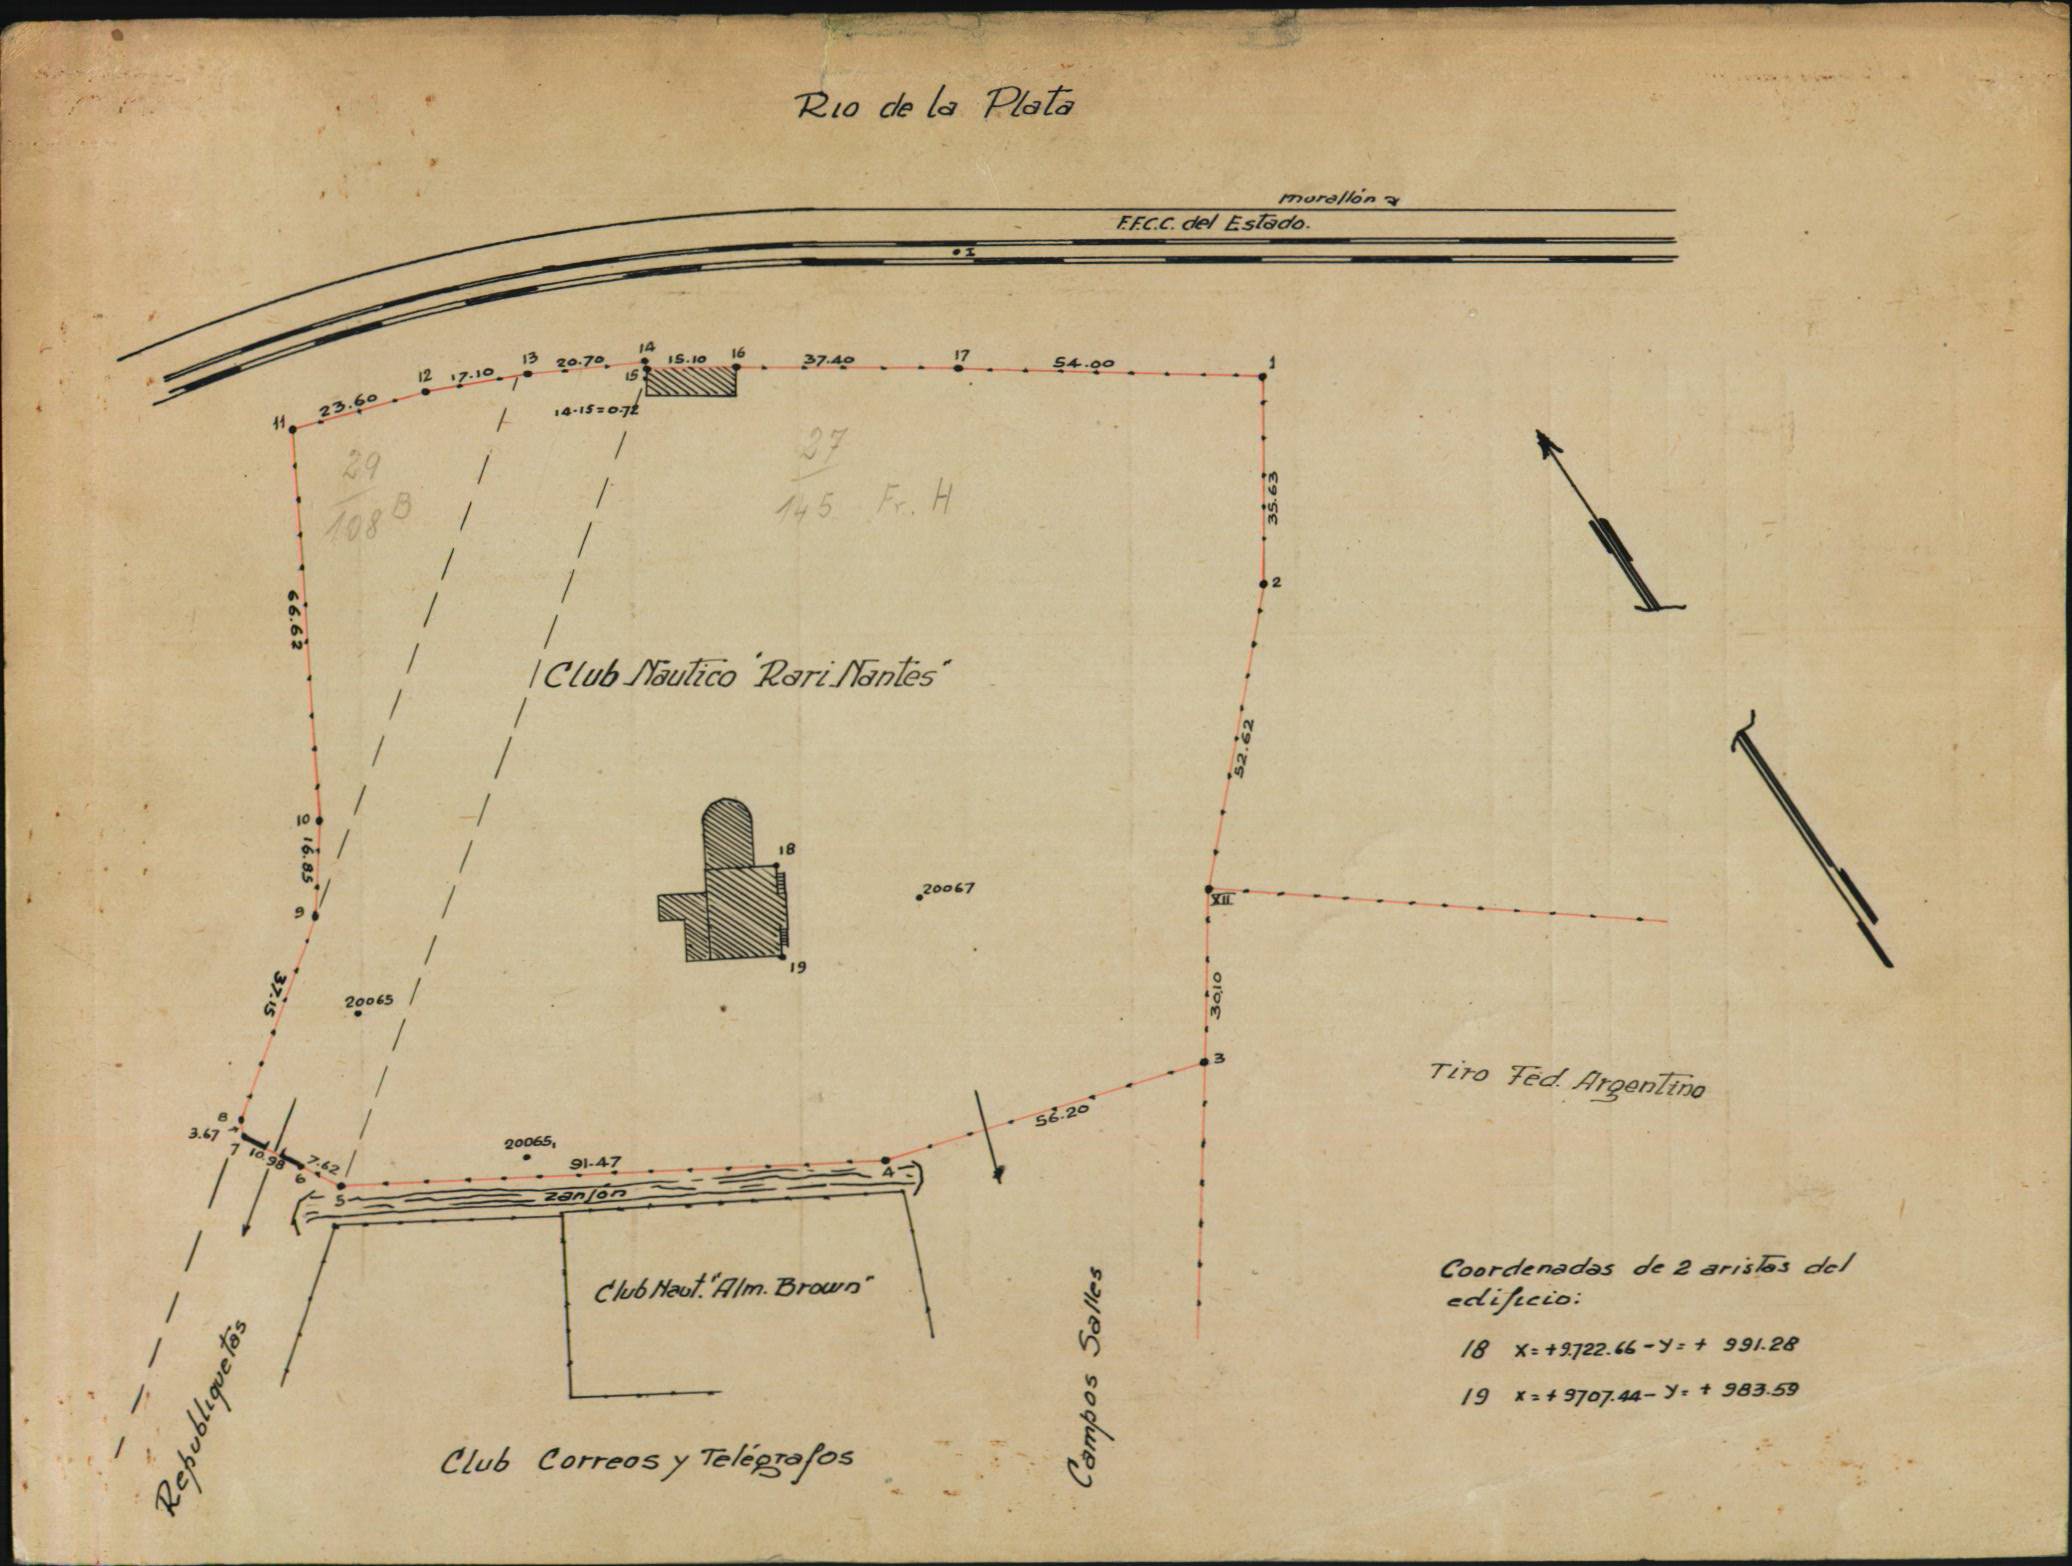 Rio de la Plata
murallón
F.F.C.C. del Estado.
I
14
13
20.70
15.10
16
37.40
17
54.00
1
12
17.10
15
23.60
11
14-15=0.72
29
108 B
27
145 Fr. H
35.63
2
66.62
Club Náutico "Rari Nantes"
52.62
10
16.85
18
20067
XII
9
19
37.15
20065
30.10
3
Tiro Fed. Argentino
8
3.67
7
10.98
6
7.62
5
20065,
91.47
4
56.20
zanjón
Club Naut. "Alm. Brown"
Coordenadas de 2 aristas del
edificio:
18 X=+9.722.66-Y=+ 991.28
19 X=+9707.44-Y=+ 983.59
Campos Salles
Republiquetas
Club Correos y Telégrafos